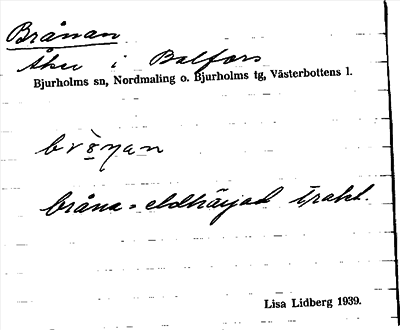 Brånan
Åker i Balfors
Bjurholms sn, Nordmaling o. Bjurholms tg, Västerbottens l.
bråna = eldhärjad trakt.
Lisa Lidberg 1939.